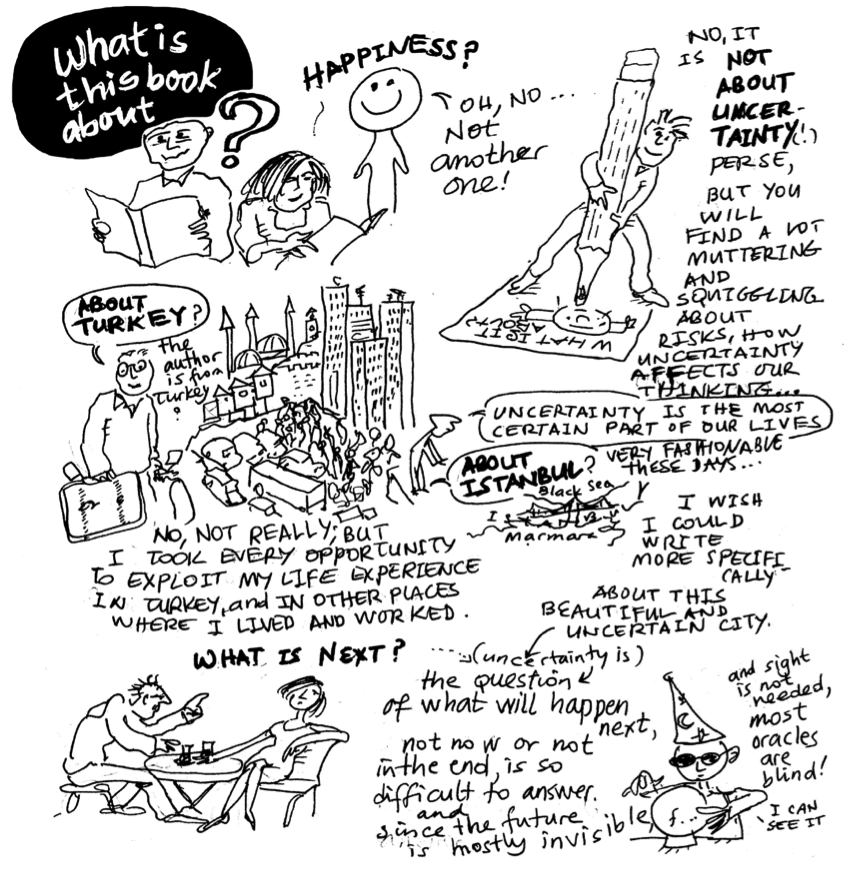 What is
this book
about
?
HAPPINESS?
OH, NO...
Not
another
one!
NO, IT
IS NOT
ABOUT
UNCER-
TAINTY(!)
PERSE,
BUT YOU
WILL
FIND A LOT
MUTTERING
AND
SQUIGGLING
ABOUT
RISKS, HOW
UNCERTAINTY
AFFECTS OUR
THINKING...
WHAT IS IT
ABOUT?
ABOUT
TURKEY?
the
author
is from
Turkey
?
UNCERTAINTY IS THE MOST
CERTAIN PART OF OUR LIVES
VERY FASHIONABLE
THESE DAYS...
ABOUT
ISTANBUL?
Black Sea
Istanbul
Marmara
NO, NOT REALLY; BUT
I TOOK EVERY OPPORTUNITY
TO EXPLOIT MY LIFE EXPERIENCE
IN TURKEY, and IN OTHER PLACES
WHERE I LIVED AND WORKED.
I WISH
I COULD
WRITE
MORE SPECIFI
CALLY-
ABOUT THIS
BEAUTIFUL AND
UNCERTAIN CITY.
WHAT IS NEXT?
(uncertainty is)
the question
of what will happen
next,
not now or not
in the end, is so
difficult to answer.
and
since the future
is mostly invisible,
and sight
is not
needed,
most
oracles
are
blind!
f...
I CAN
SEE IT